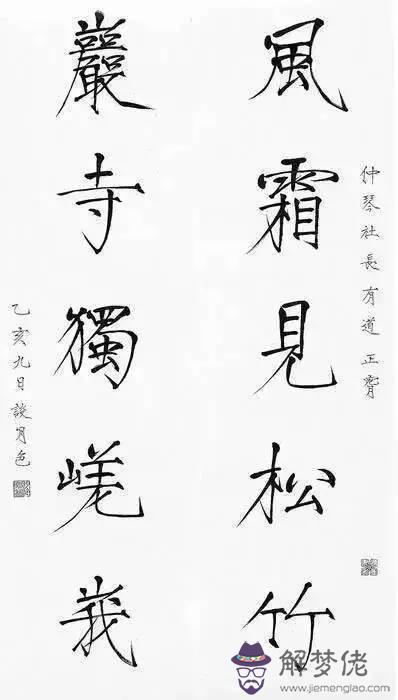 仲琴社長有道 正
風霜見松竹
巖寺獨嵯峩
乙亥九日談月色
解梦佬
www.jiemenglao.com